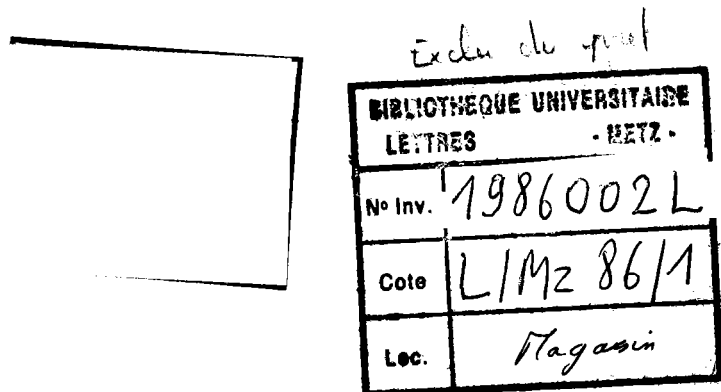 Exclu du prêt
BIBLIOTHEQUE UNIVERSITAIRE
LETTRES - METZ -
No Inv. 1986002L
Cote L/Mz 86/1
Loc. Magasin